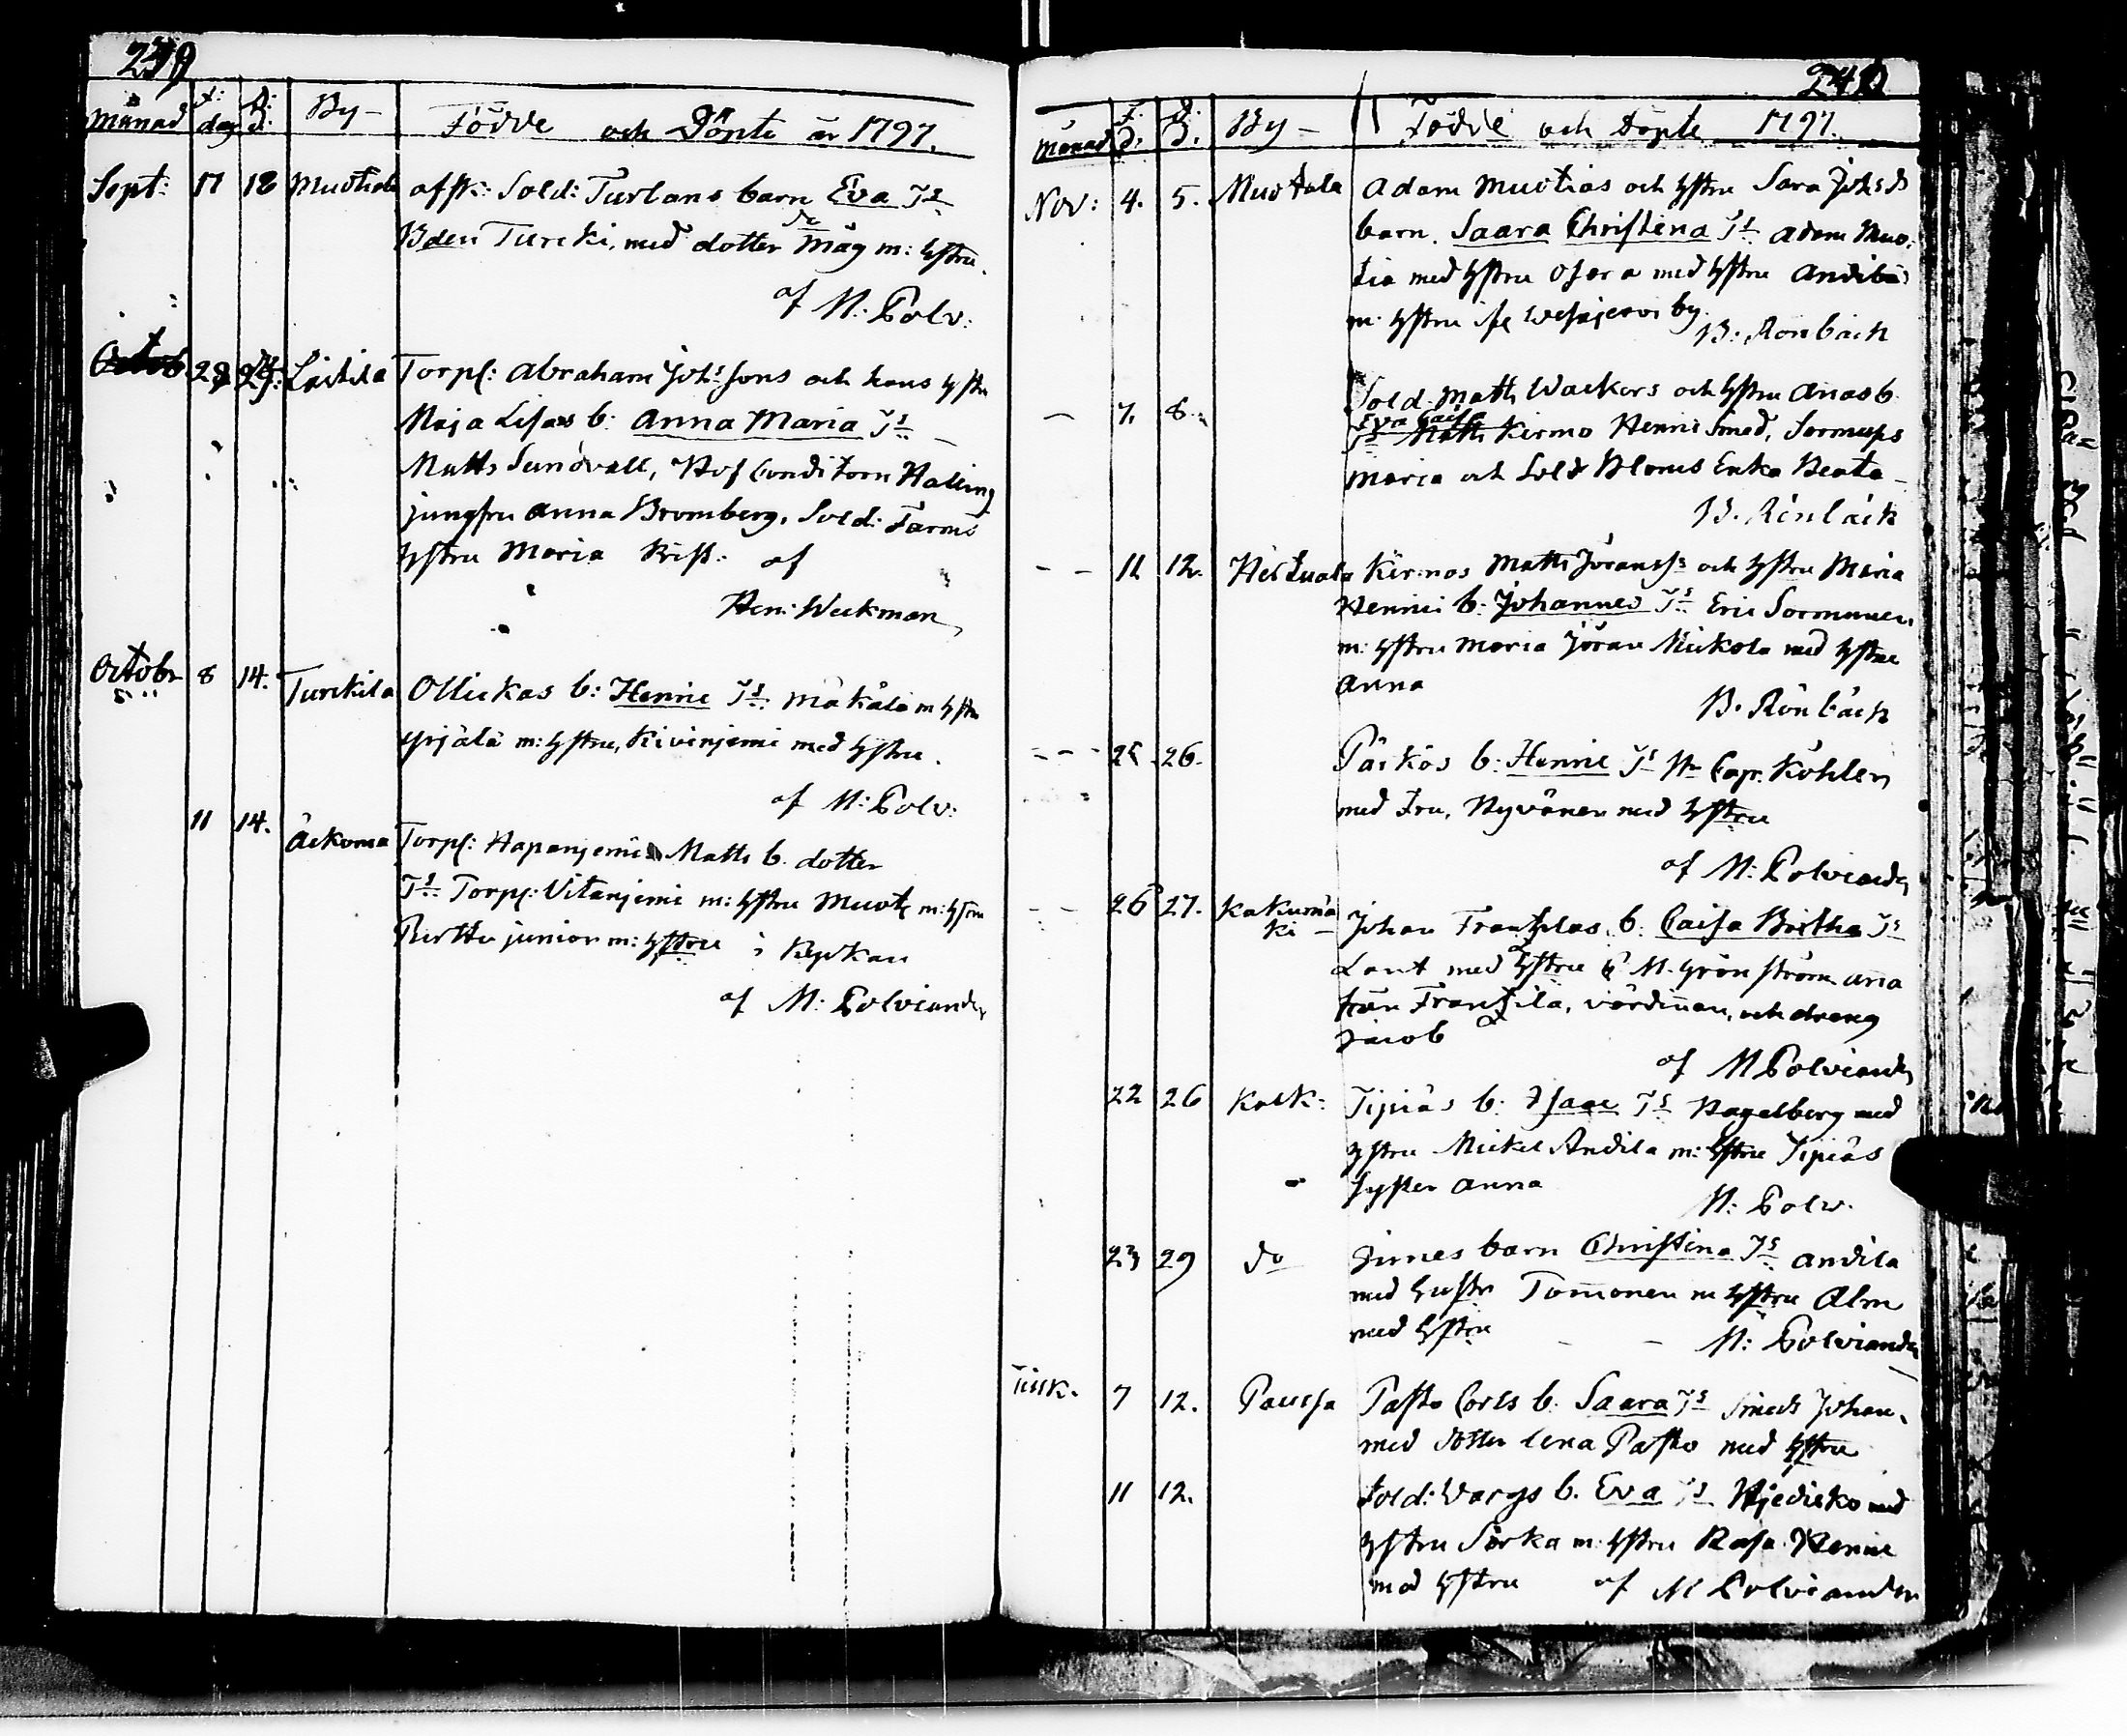 239
månad f: dag D: d. By – Födde och Döpte år 1797.
Sept: 17 18 Muotiala afsk: Sold: Turlans barn Eva Ts
Bden Turcki, med dotter Måg m: hstru.
af M: Polv:
Octob 28 29. Laitila Torp: Abraham Johs sons och hans hstru
Maja Lisas b: Anna Maria Ts
Matts Sundvall, Hof Conditorn Halling
jungfru Anna Bromberg, Sold: Farms
hstru Maria Krist: af
Hen: Weckman
Octobr 8 14. Turckila Ollickas b: Henric Ts Mäkälä m hstru
m: hstru, Kivinjemi med hstru.
af M: Polv:
11 14. Torp: Hapanjemis Matts b. dotter
Ts Torp: Vitanjemi m: hstru Muot m: hstru
Perttu junior m: hstru i
af M: Polviander
240
månad F: d. D: D. By – Födde och Döpte 1797.
Nov: 4. 5. Muotala Adam Muotias och hstru Sara Johsd
barn. Saara Christina Ts Adam Muo-
tia med hstru med hstru Andila
m. hstru by.
B: Rönbäck
– 7. 8. Sold. Matts Wackers och hstru Anas b.
Eva Caisa
Ts Matts Kirmo Henric Smed, Sormups
Maria och Sold Bloms Enka Beata –
B. Rönbäck
– – 11 12. Kirmos Matts Jöranss och hstru Maria
Henrici b: Johannes Ts Eric Sormunen
m: hstru Maria Jöran Mickola med hstru
Anna
B. Rönbäck
– – – 25 26. Päckös b: Henric Ts Hr Cap. Köhler
med Fru, Hyvönen med hstru
af M: Polviander
– – 26 27. Kakumä
ki – Johan Frantzilas b: Caisa Britha Ts
Lant med hstru M. Grönström Ana
från Frantzila, värdinnan, och dräng
Jacob
af M Polviander
22 26 Kask: Tipiäs b: Isaac Ts Hagelberg med
hstru Mickel Andila m: hstru Tipiäs
syster Anna
M: Polv.
23 29 do Simes barn Christina Ts Andila
med hustr Tommonen m hstru Alm
med hstru – – M: Polviander
7 12. Paussa Pasto Carls b: Saara Ts Smeds Johan,
med dotter Lena Pasto med hstru
11 12. Sold: Wargs b. Eva Ts Hjedisko med
hstru Sorka m: hstru Rasa Henric
med hstru af M Polviander